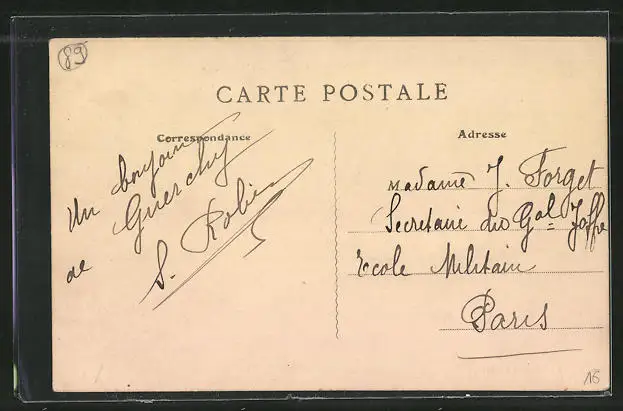 89
CARTE POSTALE
Correspondance
Adresse
Un bonjour
de Guerchy
S. Robin
Madame J. Forget
Secretaire du Gal Joffre
Ecole Militaire
Paris
16